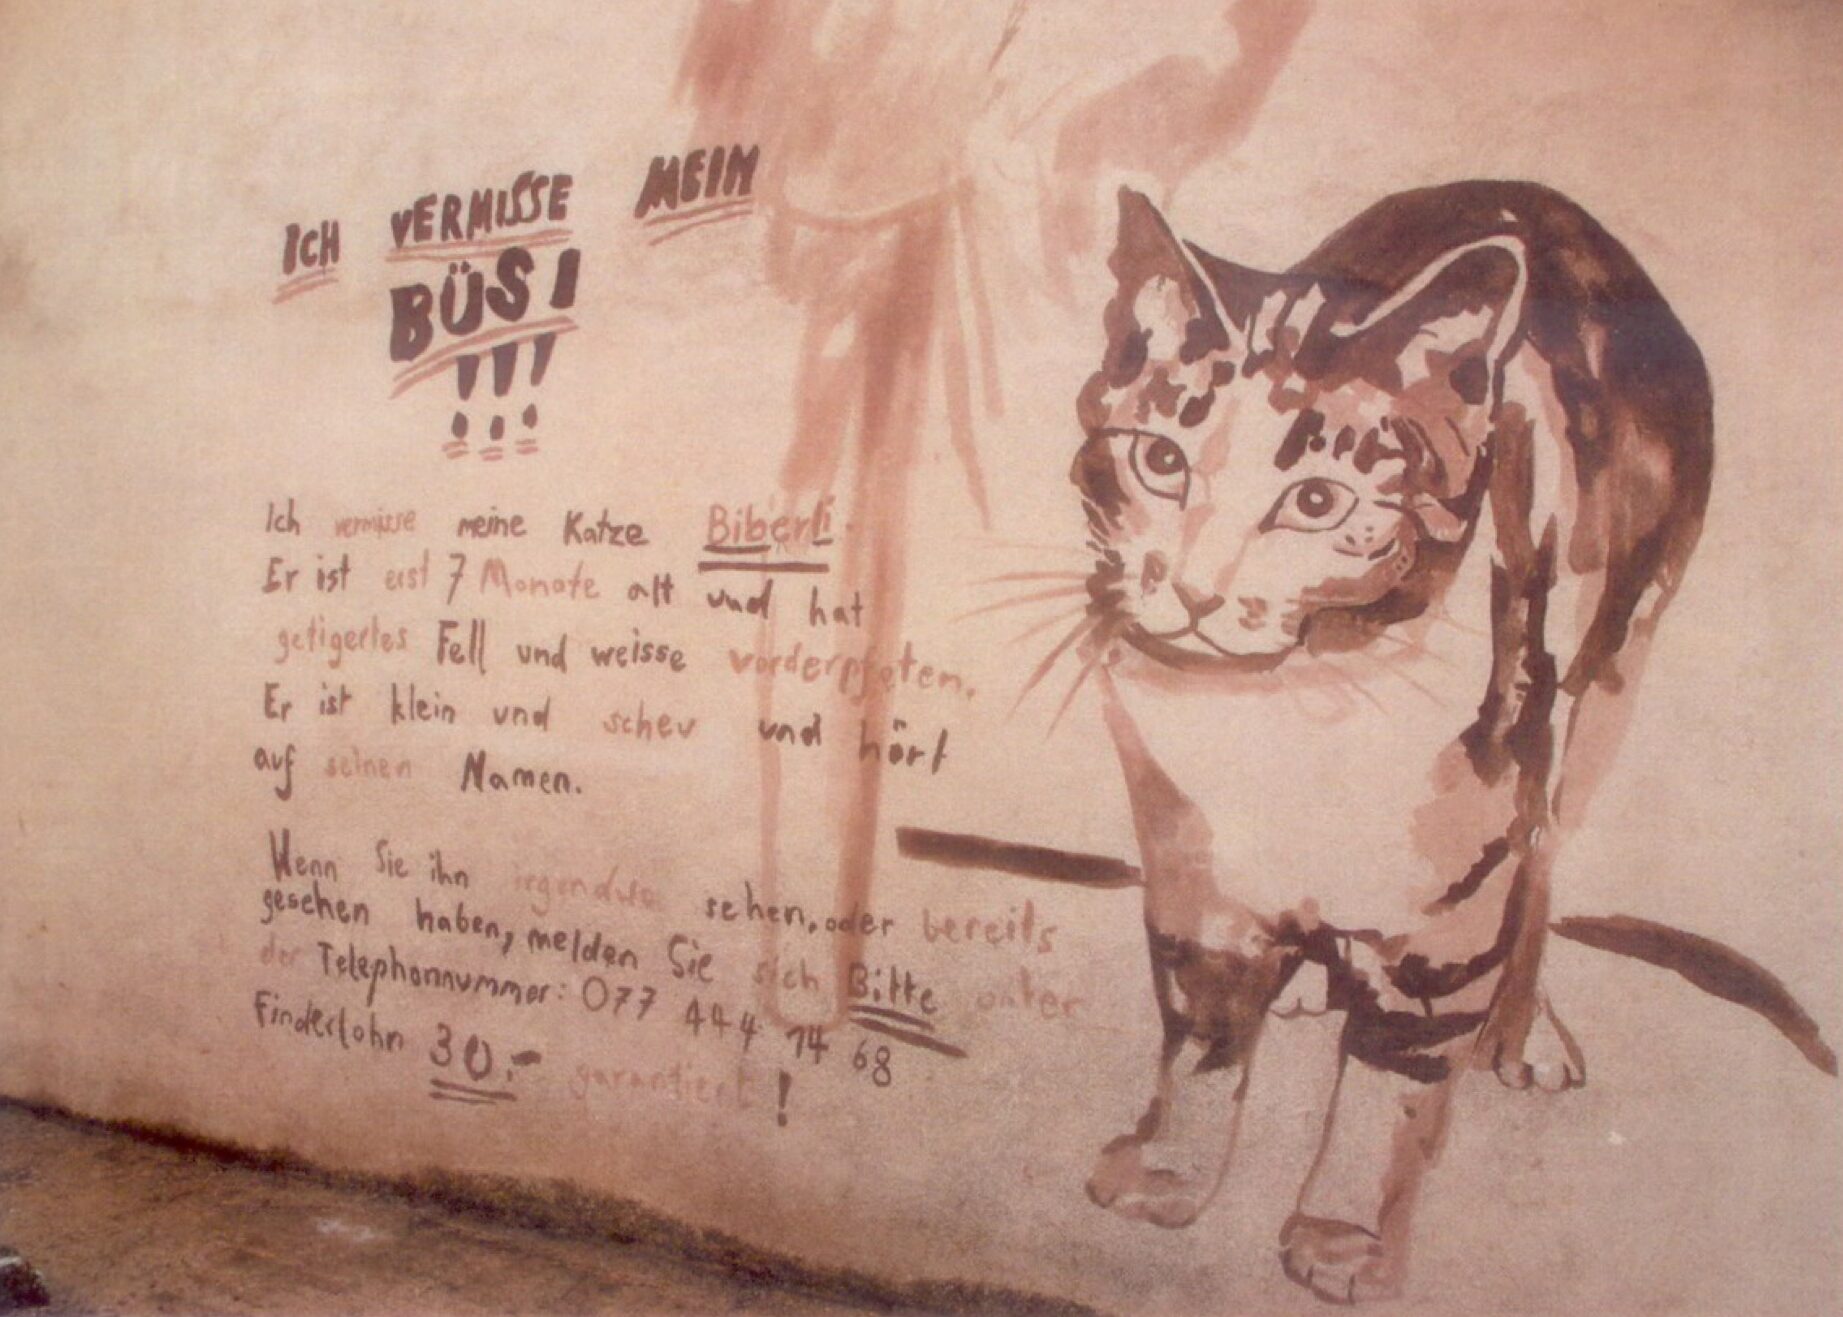 ICH VERMISSE MEIN
BÜSI
!!!
Ich vermisse meine Katze Biberli.
Er ist erst 7 Monate alt und hat
getigertes Fell und weisse vorderpfoten.
Er ist klein und scheu und hört
auf seinen Namen.
Wenn Sie ihn irgendwo sehen, oder bereits
gesehen haben, melden Sie sich Bitte unter
der Telephonnummer: 077 444 14 68
Finderlohn 30.- garantiert!